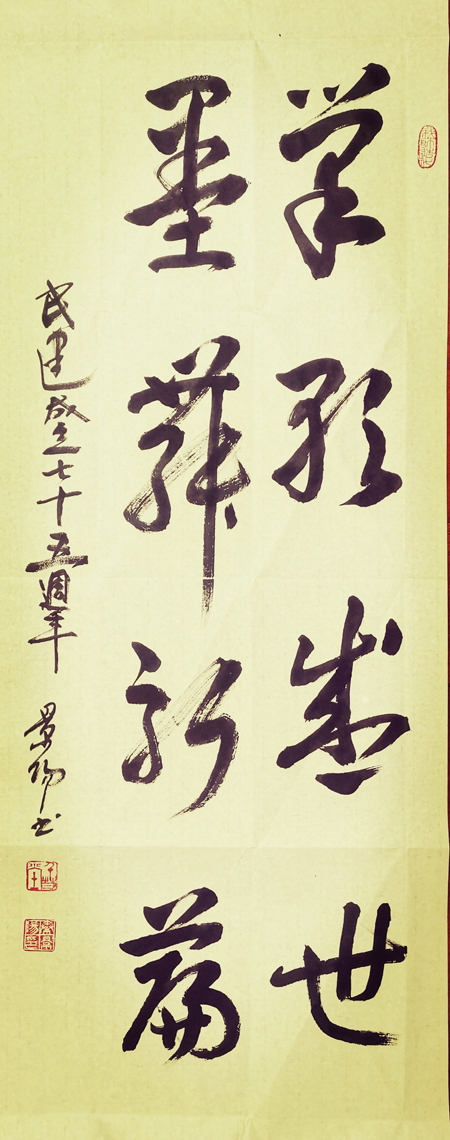 笔歌盛世
墨舞新篇
民建成立七十五週年 景阳书